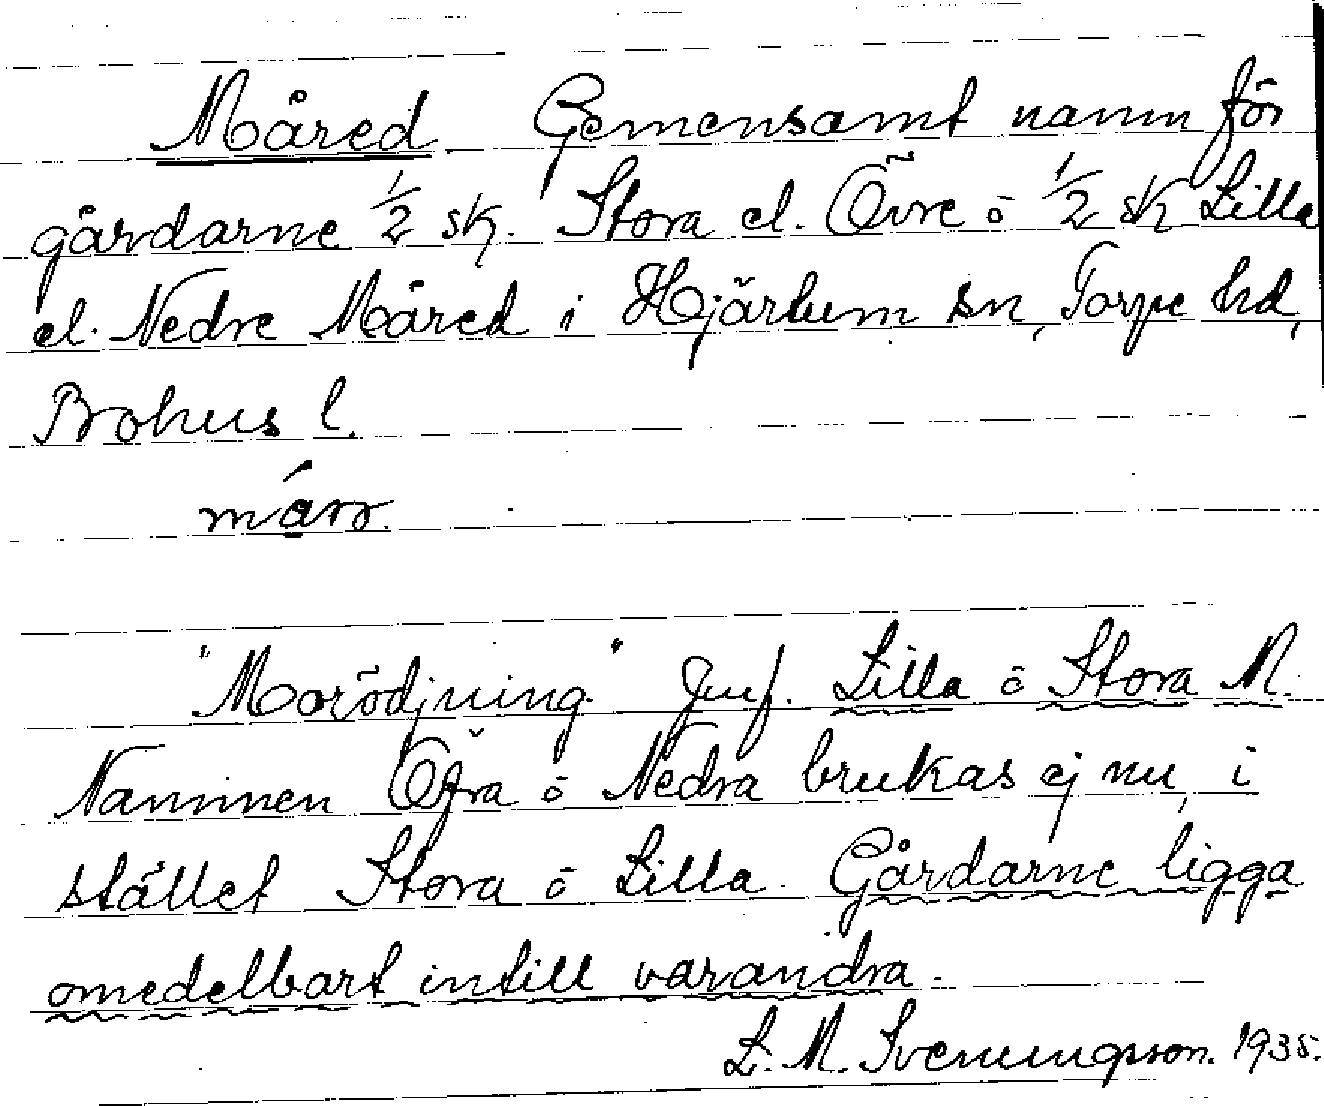 Måred Gemensamt namn för
gårdarne 1/2 sk. Stora el. Övre o 1/2 sk Lilla
el. Nedre Måred i Hjärtum sn, Torpe hd,
Bohus l.
"Morödjning." Jmf. Lilla o Stora M.
Namnen Öfra o Nedra brukas ej nu, i
stället Stora o Lilla. Gårdarne ligga
omedelbart intill varandra.
L. M. Svenungsson. 1935.